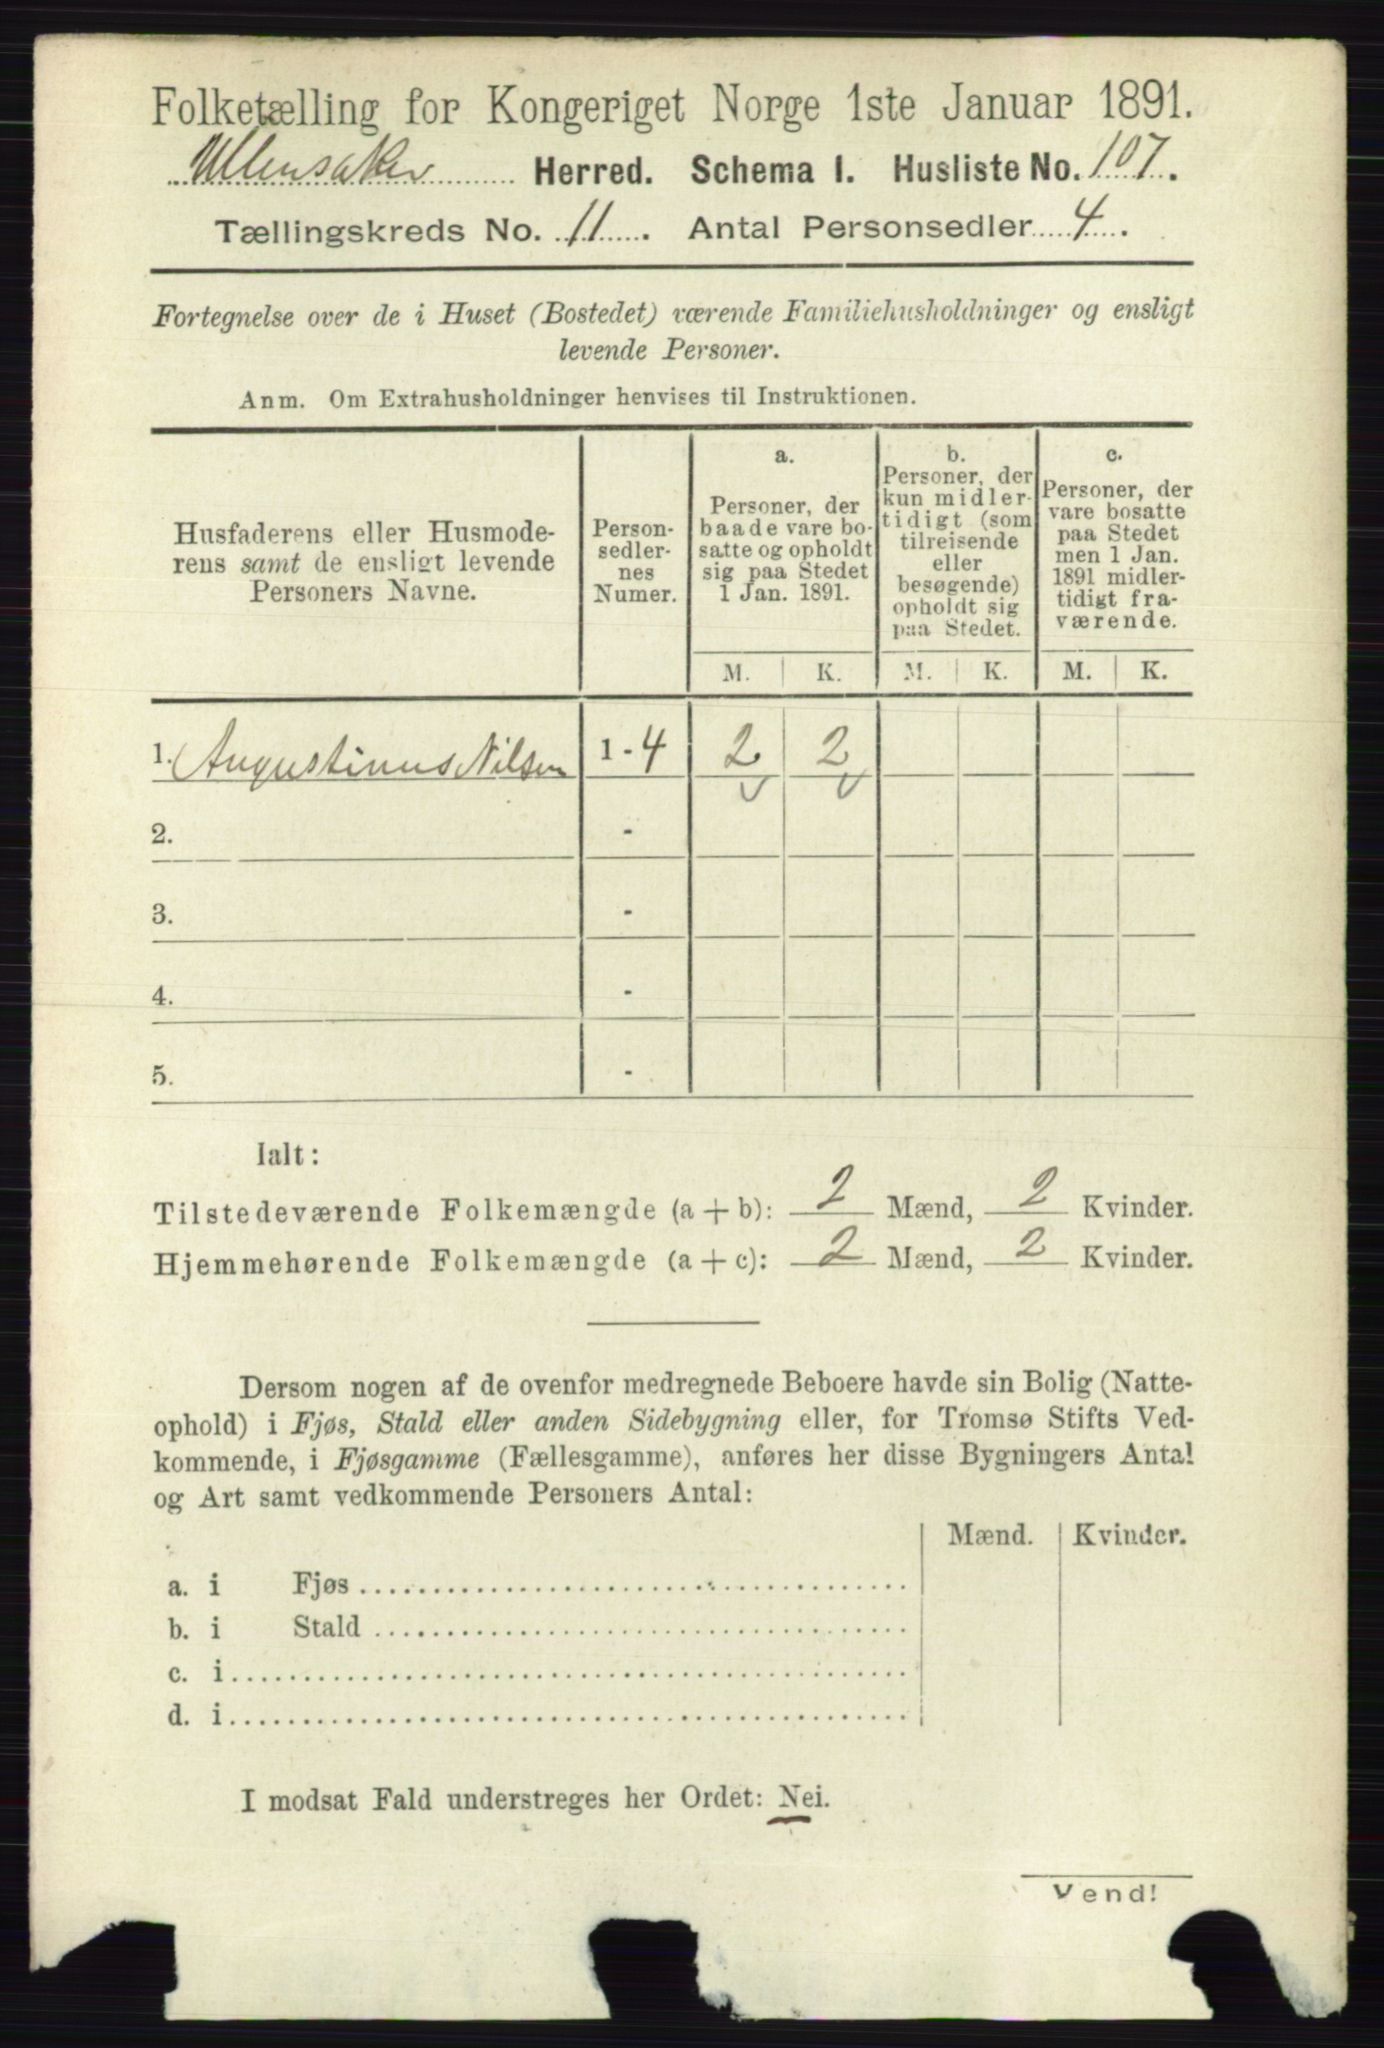 Folketælling for Kongeriget Norge 1ste Januar 1891.
Ullensaker Herred. Schema I. Husliste No. 107.
Tællingskreds No. 11. Antal Personsedler 4.
Fortegnelse over de i Huset (Bostedet) værende Familiehusholdninger og ensligt
levende Personer.
Anm. Om Extrahusholdninger henvises til Instruktionen.
Husfaderens eller Husmode-
rens samt de ensligt levende
Personers Navne.
Person-
sedler-
nes
Numer.
a.
Personer, der
baade vare bo-
satte og opholdt
sig paa Stedet
1 Jan. 1891.
b.
Personer, der
kun midler-
tidigt (som
tilreisende
eller
besøgende)
opholdt sig
paa Stedet.
c.
Personer, der
vare bosatte
paa Stedet
men 1 Jan.
1891 midler-
tidigt fra-
værende.
M. K. M. K. M. K.
1. Augustinus Nilsen 1 - 4 2 2
2. -
3. -
4. -
5. -
Ialt:
Tilstedeværende Folkemængde (a + b): 2 Mænd, 2 Kvinder.
Hjemmehørende Folkemængde (a + c): 2 Mænd, 2 Kvinder.
Dersom nogen af de ovenfor medregnede Beboere havde sin Bolig (Natte-
ophold) i Fjøs, Stald eller anden Sidebygning eller, for Tromsø Stifts Ved-
kommende, i Fjøsgamme (Fællesgamme), anføres her disse Bygningers Antal
og Art samt vedkommende Personers Antal:
Mænd. Kvinder.
a. i Fjøs
b. i Stald
c. i
d. i
I modsat Fald understreges her Ordet: Nei.
Vend!